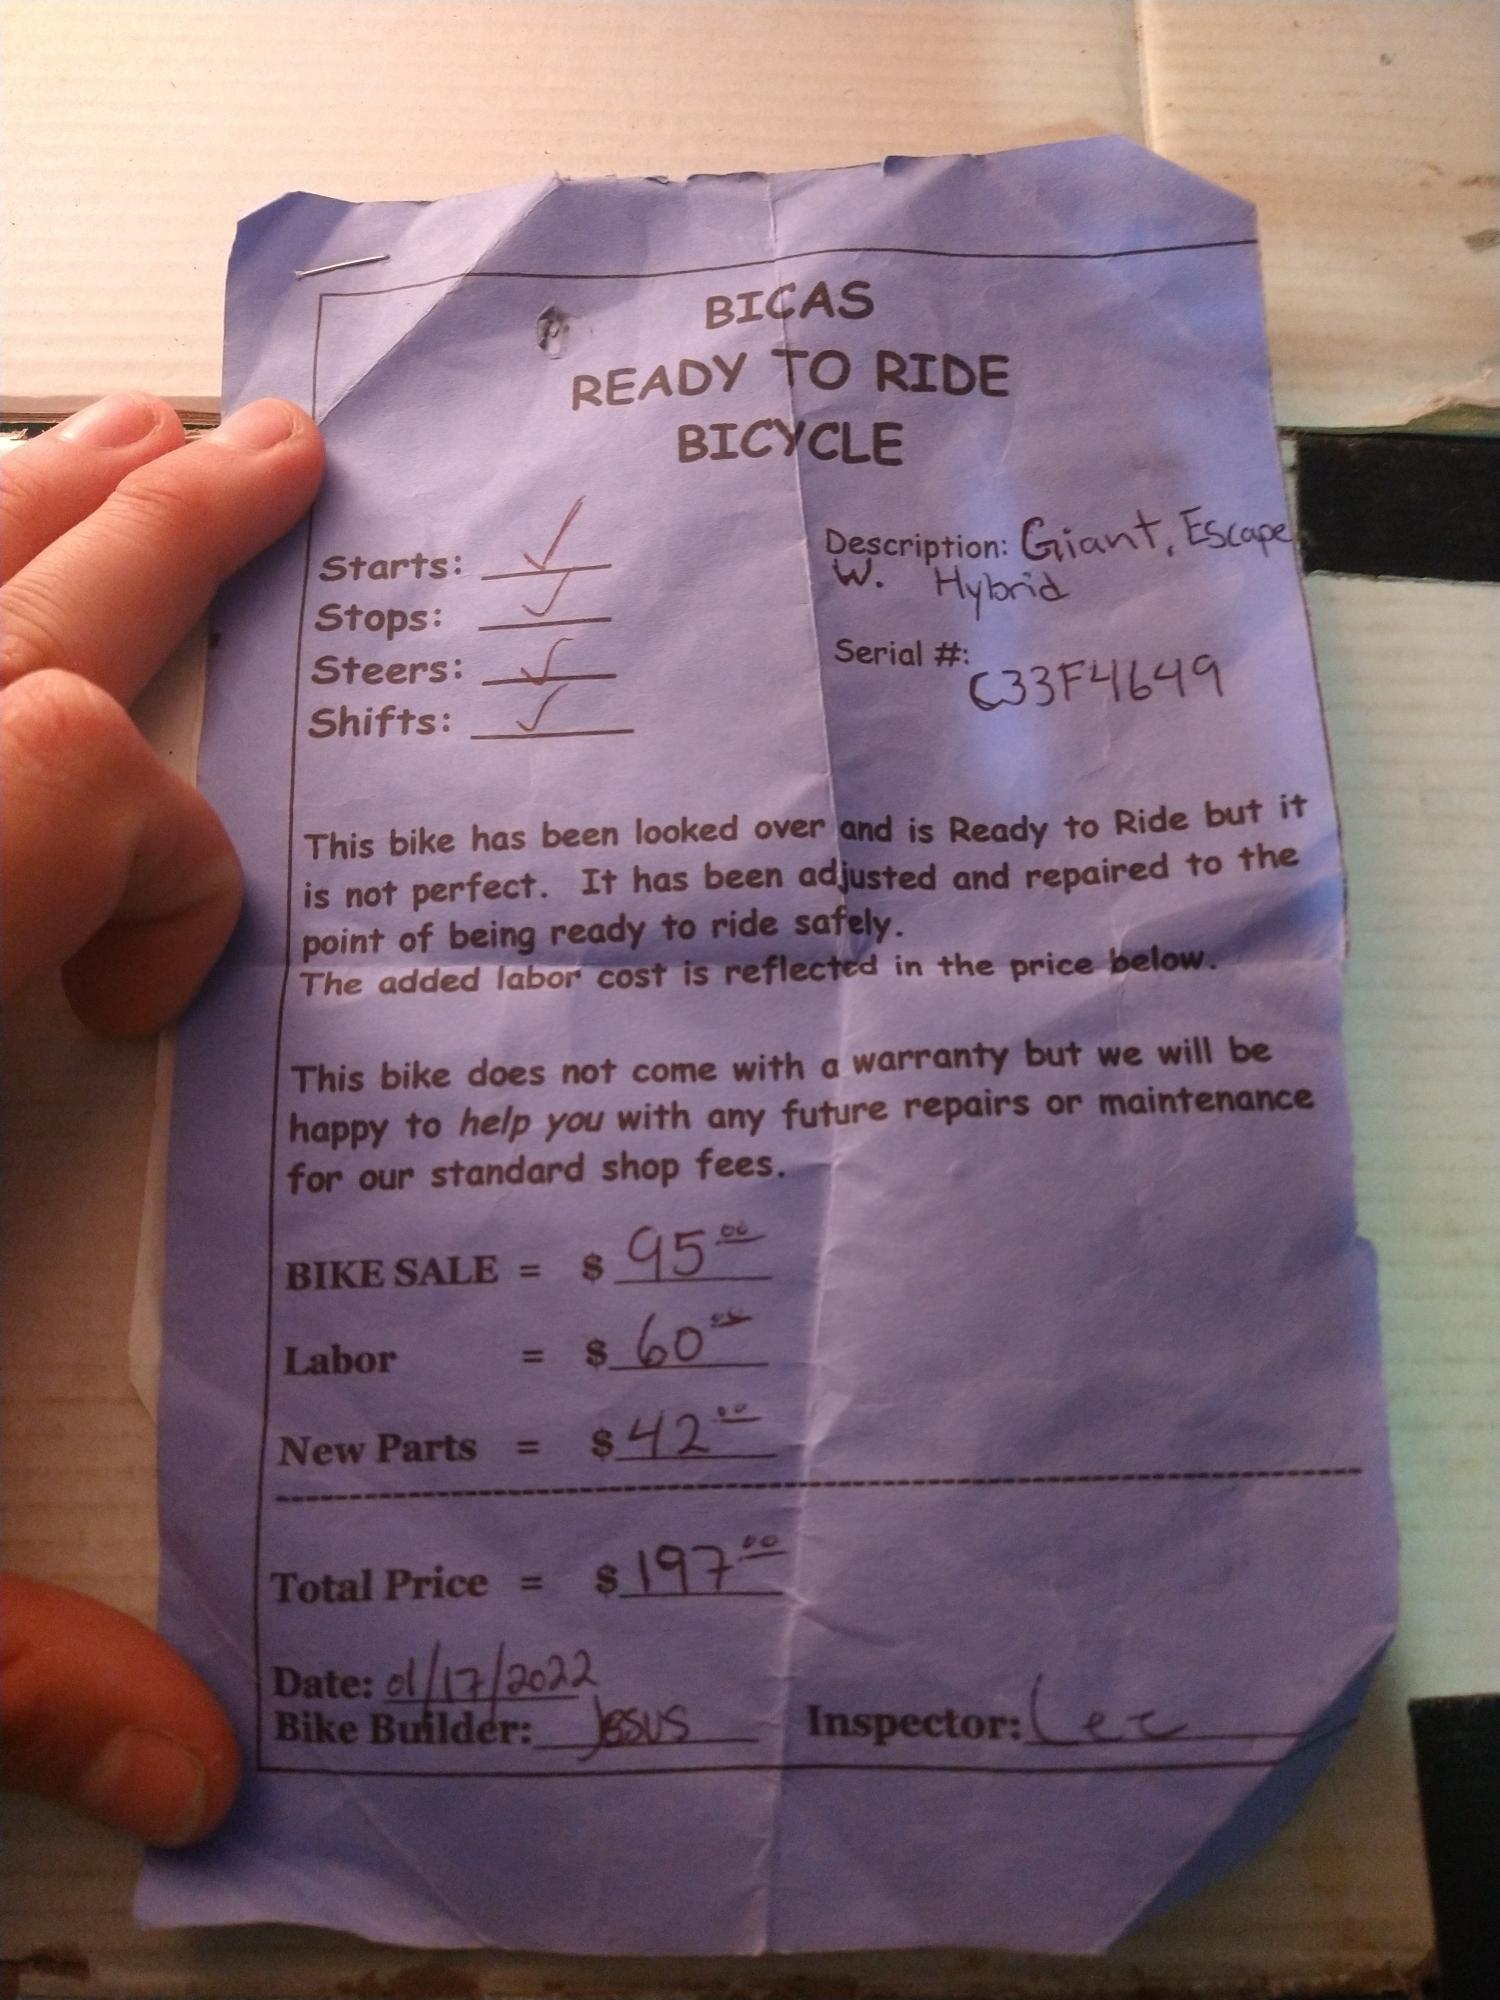 BICAS
READY TO RIDE
BICYCLE
Starts: ✓
Stops: ✓
Steers: ✓
Shifts: ✓
Description: Giant, Escape
W. Hybrid
Serial #:
C33F4649
This bike has been looked over and is Ready to Ride but it
is not perfect. It has been adjusted and repaired to the
point of being ready to ride safely.
The added labor cost is reflected in the price below.
This bike does not come with a warranty but we will be
happy to help you with any future repairs or maintenance
for our standard shop fees.
BIKE SALE = $ 95.00
Labor = $ 60.00
New Parts = $ 42.00
Total Price = $ 197.00
Date: 01/17/2022
Bike Builder: Jesus Inspector: Lee